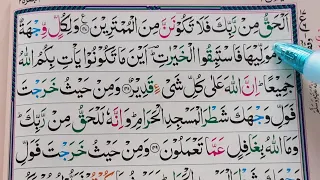 اَلْحَقُّ مِنْ رَّبِّكَ فَلَا تَكُوْنَنَّ مِنَ الْمُمْتَرِيْنَ وَلِكُلٍّ وِّجْهَةٌ
هُوَ مُوَلِّيْهَا فَاسْتَبِقُوا الْخَيْرٰتِ اَيْنَ مَا تَكُوْنُوْا يَاْتِ بِكُمُ اللّٰهُ
جَمِيْعًا اِنَّ اللّٰهَ عَلٰى كُلِّ شَیْءٍ قَدِيْرٌ وَمِنْ حَيْثُ خَرَجْتَ
فَوَلِّ وَجْهَكَ شَطْرَ الْمَسْجِدِ الْحَرَامِ وَاِنَّهٗ لَلْحَقُّ مِنْ رَّبِّكَ
وَمَا اللّٰهُ بِغَافِلٍ عَمَّا تَعْمَلُوْنَ وَمِنْ حَيْثُ خَرَجْتَ فَوَلِّ